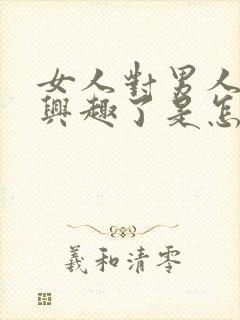 女人對男人
興趣了是怎
羲和清零